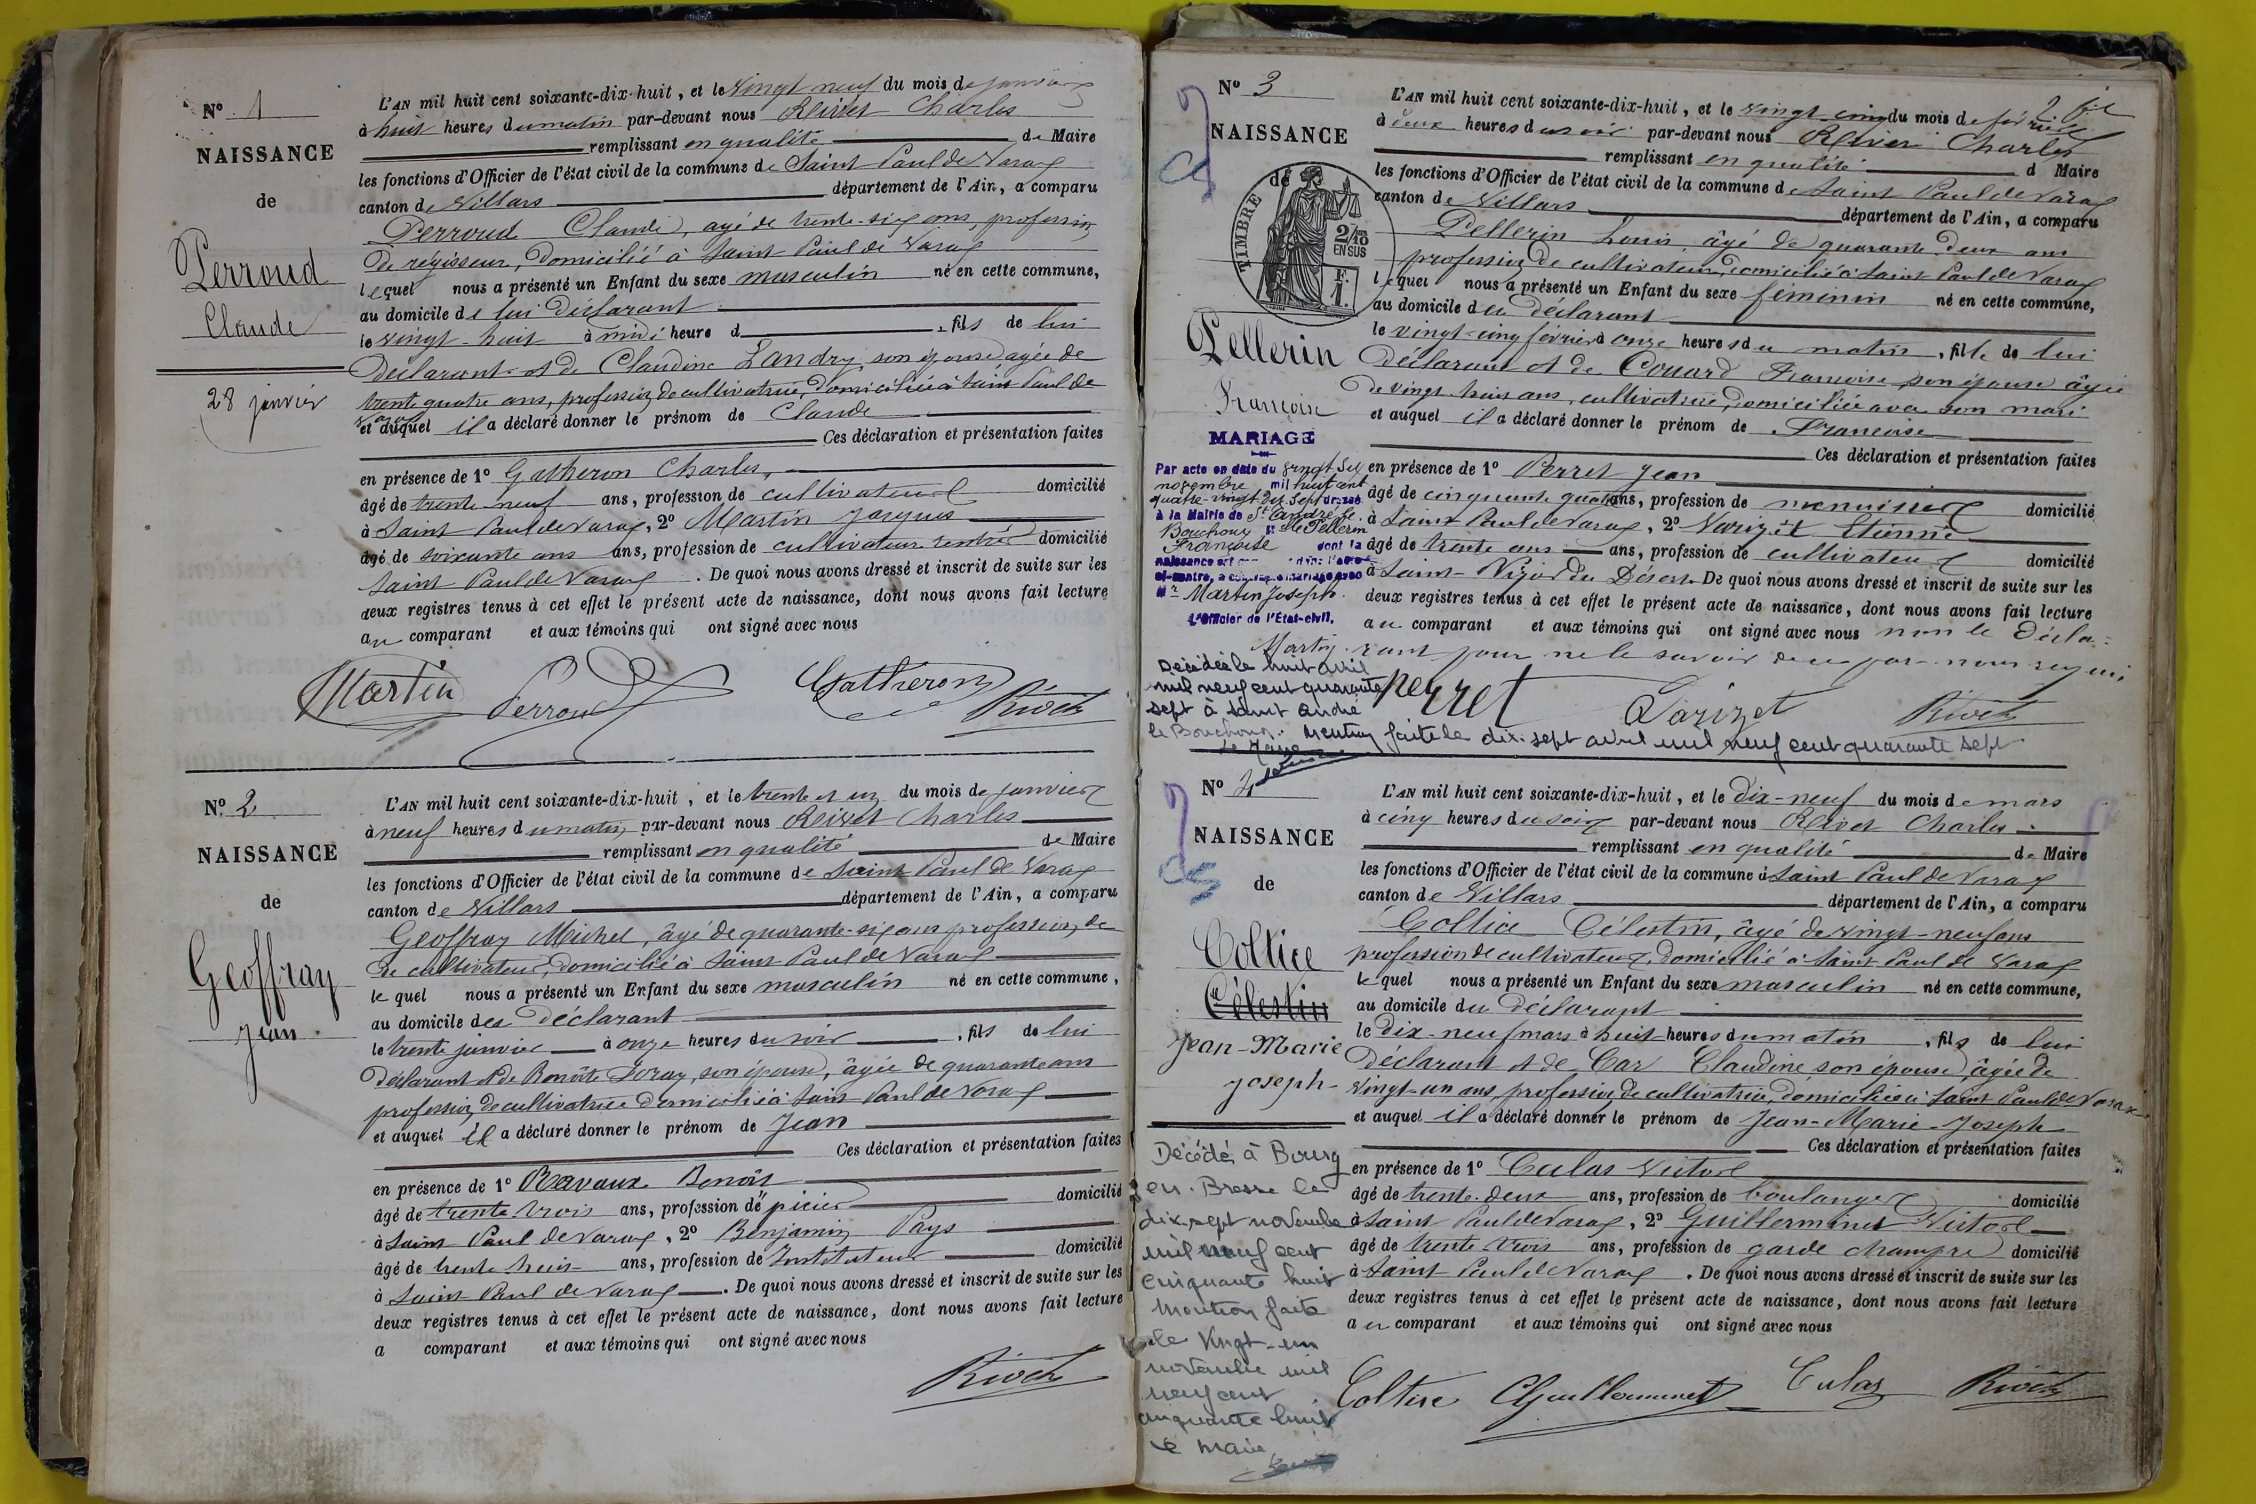 Nº 1
NAISSANCE
de
Perroud
Claude
28 janvier
L'AN mil huit cent soixante-dix-huit, et le vingt neuf du mois de janvier
à huit heures du matin par-devant nous Rivet Charles
remplissant en qualité de Maire
les fonctions d'Officier de l'état civil de la commune de Saint Paul de Varax
canton de Villars département de l'Ain, a comparu
Perroud Claude, agé de trente-six ans, profession
de régisseur, domicilié à Saint Paul de Varax
lequel nous a présenté un Enfant du sexe masculin né en cette commune,
au domicile de lui déclarant
le vingt-huit à midi heure d , fils de lui
déclarant et de Claudine Landry, son épouse agée de
trente quatre ans, profession de cultivatrice, domiciliée à Saint Paul de
Varax
et auquel il a déclaré donner le prénom de Claude
Ces déclaration et présentation faites
en présence de 1º Gatheron Charles,
âgé de trente-neuf ans, profession de cultivateur domicilié
à Saint Paul de Varax, 2º Martin Jacques
âgé de soixante ans ans, profession de cultivateur rentier domicilié
Saint Paul de Varax. De quoi nous avons dressé et inscrit de suite sur les
deux registres tenus à cet effet le présent acte de naissance, dont nous avons fait lecture
au comparant et aux témoins qui ont signé avec nous
Martin Perroud Gatheron Rivet
Nº 2
NAISSANCE
de
Geoffray
Jean
L'AN mil huit cent soixante-dix-huit, et le trente et un du mois de janvier
à neuf heures du matin par-devant nous Rivet Charles
remplissant en qualité de Maire
les fonctions d'Officier de l'état civil de la commune de Saint Paul de Varax
canton de Villars département de l'Ain, a comparu
Geoffray Michel, âgé de quarante-six ans profession de
de cultivateur, domicilié à Saint Paul de Varax
lequel nous a présenté un Enfant du sexe masculin né en cette commune,
au domicile des déclarant
le trente janvier à onze heures du soir, fils de lui
déclarant et de Benoîte, son épouse, âgée de quarante ans
profession de cultivatrice domiciliée à Saint Paul de Varax
et auquel il a déclaré donner le prénom de Jean
Ces déclaration et présentation faites
en présence de 1º Ravaux Benoît
âgé de trente trois ans, profession d'épicier domicilié
à Saint Paul de Varax, 2º Benjamin Pays
âgé de trente huit ans, profession de Instituteur domicilié
à Saint Paul de Varax. De quoi nous avons dressé et inscrit de suite sur les
deux registres tenus à cet effet le présent acte de naissance, dont nous avons fait lecture
a comparant et aux témoins qui ont signé avec nous
Rivet
Nº 3
NAISSANCE
de
TIMBRE
2/10
EN SUS
F.
1.
Pellerin
Françoise
MARIAGE
Par acte en date du vingt six
novembre mil huit cent
quatre-vingt dix sept dressé
à la Mairie de St André le
Bouchoux Mlle Pellerin
Françoise dont la
naissance est dans l'acte
ci-contre, a contracté mariage avec
Mr Martin Joseph.
L'Officier de l'Etat-civil,
Martin
Décédée le huit avril
mil neuf cent quarante
sept à Saint André
le Bouchoux. Mention faite le dix-sept avril mil neuf cent quarante sept
Le Maire
L'AN mil huit cent soixante-dix-huit, et le vingt-cinq du mois de février
à deux heures du soir par-devant nous Rivet Charles
remplissant en qualité d Maire
les fonctions d'Officier de l'état civil de la commune de Saint Paul de Varax
canton de Villars département de l'Ain, a comparu
Pellerin Louis, âgé de quarante deux ans
profession de cultivateur, domicilié à Saint Paul de Varax
lequel nous a présenté un Enfant du sexe féminin né en cette commune,
au domicile du déclarant
le vingt-cinq février à onze heures du matin, fille de lui
déclarant et de Couard Françoise son épouse âgée
de vingt-huit ans, cultivatrice, domiciliée avec son mari
et auquel il a déclaré donner le prénom de Françoise
Ces déclaration et présentation faites
en présence de 1º Perret Jean
âgé de cinquante quatre ans, profession de menuisier domicilié
à Saint Paul de Varax, 2º Varizet Etienne
âgé de trente ans ans, profession de cultivateur domicilié
à Saint-Nizier du Désert. De quoi nous avons dressé et inscrit de suite sur les
deux registres tenus à cet effet le présent acte de naissance, dont nous avons fait lecture
au comparant et aux témoins qui ont signé avec nous non le décla-
rant pour ne le savoir de ce par nous requis
Perret Varizet Rivet
Nº 4
NAISSANCE
de
Coltice
Célestin
Jean-Marie
Joseph
Décédé à Bourg
en Bresse le
dix-sept novembre
mil neuf cent
cinquante huit
Mention faite
le vingt-un
novembre mil
neuf cent
cinquante huit
Le Maire
L'AN mil huit cent soixante-dix-huit, et le dix-neuf du mois de mars
à cinq heures du soir par-devant nous Rivet Charles
remplissant en qualité de Maire
les fonctions d'Officier de l'état civil de la commune à Saint Paul de Varax
canton de Villars département de l'Ain, a comparu
Coltice Célestin, âgé de vingt-neuf ans
profession de cultivateur, domicilié à Saint Paul de Varax
lequel nous a présenté un Enfant du sexe masculin né en cette commune,
au domicile du déclarant
le dix-neuf mars à huit heures du matin, fils de lui
déclarant et de Car Claudine son épouse, âgée de
vingt-un ans, profession de cultivatrice, domiciliée à Saint Paul de Varax
et auquel il a déclaré donner le prénom de Jean-Marie-Joseph
Ces déclaration et présentation faites
en présence de 1º Culas Victor
âgé de trente-deux ans, profession de boulanger domicilié
à Saint Paul de Varax, 2º Guillerminet Victor
âgé de trente trois ans, profession de garde champre domicilié
à Saint Paul de Varax. De quoi nous avons dressé et inscrit de suite sur les
deux registres tenus à cet effet le présent acte de naissance, dont nous avons fait lecture
au comparant et aux témoins qui ont signé avec nous
Coltice Guillerminet Culas Rivet